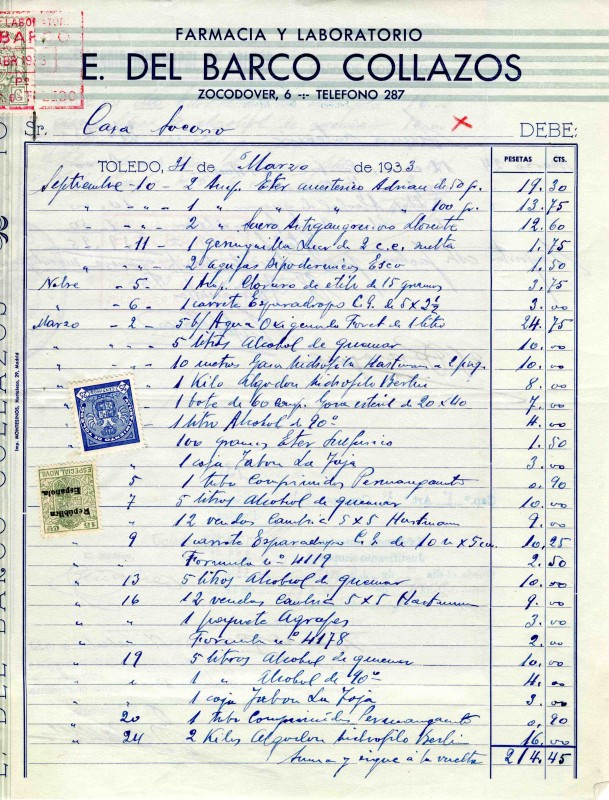 LABORATORI
BARCO
ABR 1933
TOLEDO
FARMACIA Y LABORATORIO
E. DEL BARCO COLLAZOS
ZOCODOVER, 6 -:- TELEFONO 287
Sr. Casa Socorro DEBE:
PESETAS CTS.
TOLEDO, 31 de Marzo de 1933
Septiembre - 10 - 2 Amp. Eter anestesico Adrian de 50 gr. 19.30
" " - " 1 " " " 100 gr. 13.75
" - " 2 " Suero Antigangrenoso Llorente 12.60
" - 11 - 1 geringuilla Luer de 2 c.c. suelta 1.75
" " 2 agujas hipodermicas Esco 1.50
Nobre - 5 - 1 Amp. Cloruro de etilo de 15 gramos 3.75
" - 6 - 1 carrete Esparadrapo C.E. de 5 x 2½ 3.00
Marzo - 2 - 5 b/ Agua Oxigenada Foret de 1 litro 24.75
" " 5 litros Alcohol de quemar 10.00
" " 10 metros Gasa hidrofila Hartmann 10.00
" " 1 Kilo Algodon hidrofilo Berlin 8.00
" 1 bote de 60 comp. Gasa esteril de 20 x 40 7.00
" 1 litro Alcohol de 90º 4.00
" 100 gramos Eter Sulfurico 1.50
" 1 caja Jabon La Toja 3.00
5 1 tubo Comprimidos Permanganato 0.90
7 5 litros Alcohol de quemar 10.00
" 12 vendas Cambric 5 x 5 Hartmann 9.00
" 9 1 carrete Esparadrapo C.E. de 10 m x 5 cm. 10.25
" " Formula nº 4119 2.50
" 13 5 litros Alcohol de quemar 10.00
" 16 12 vendas Cambric 5 x 5 Hartmann 9.00
" " 1 paquete Agrafes 3.00
" " Formula nº 4178 2.00
" 19 5 litros Alcohol de quemar 10.00
" " 1 " Alcohol de 90º 4.00
" " 1 caja Jabon La Toja 3.00
" 20 1 tubo Comprimidos Permanganato 0.90
" 24 2 Kilos Algodon hidrofilo Berlin 16.00
Suma y sigue á la vuelta 214.45
ESPECIAL MOVIL
República
Española.
15 CTS
Imp. MONTESINOS,
E. DEL BARCO COLLAZOS